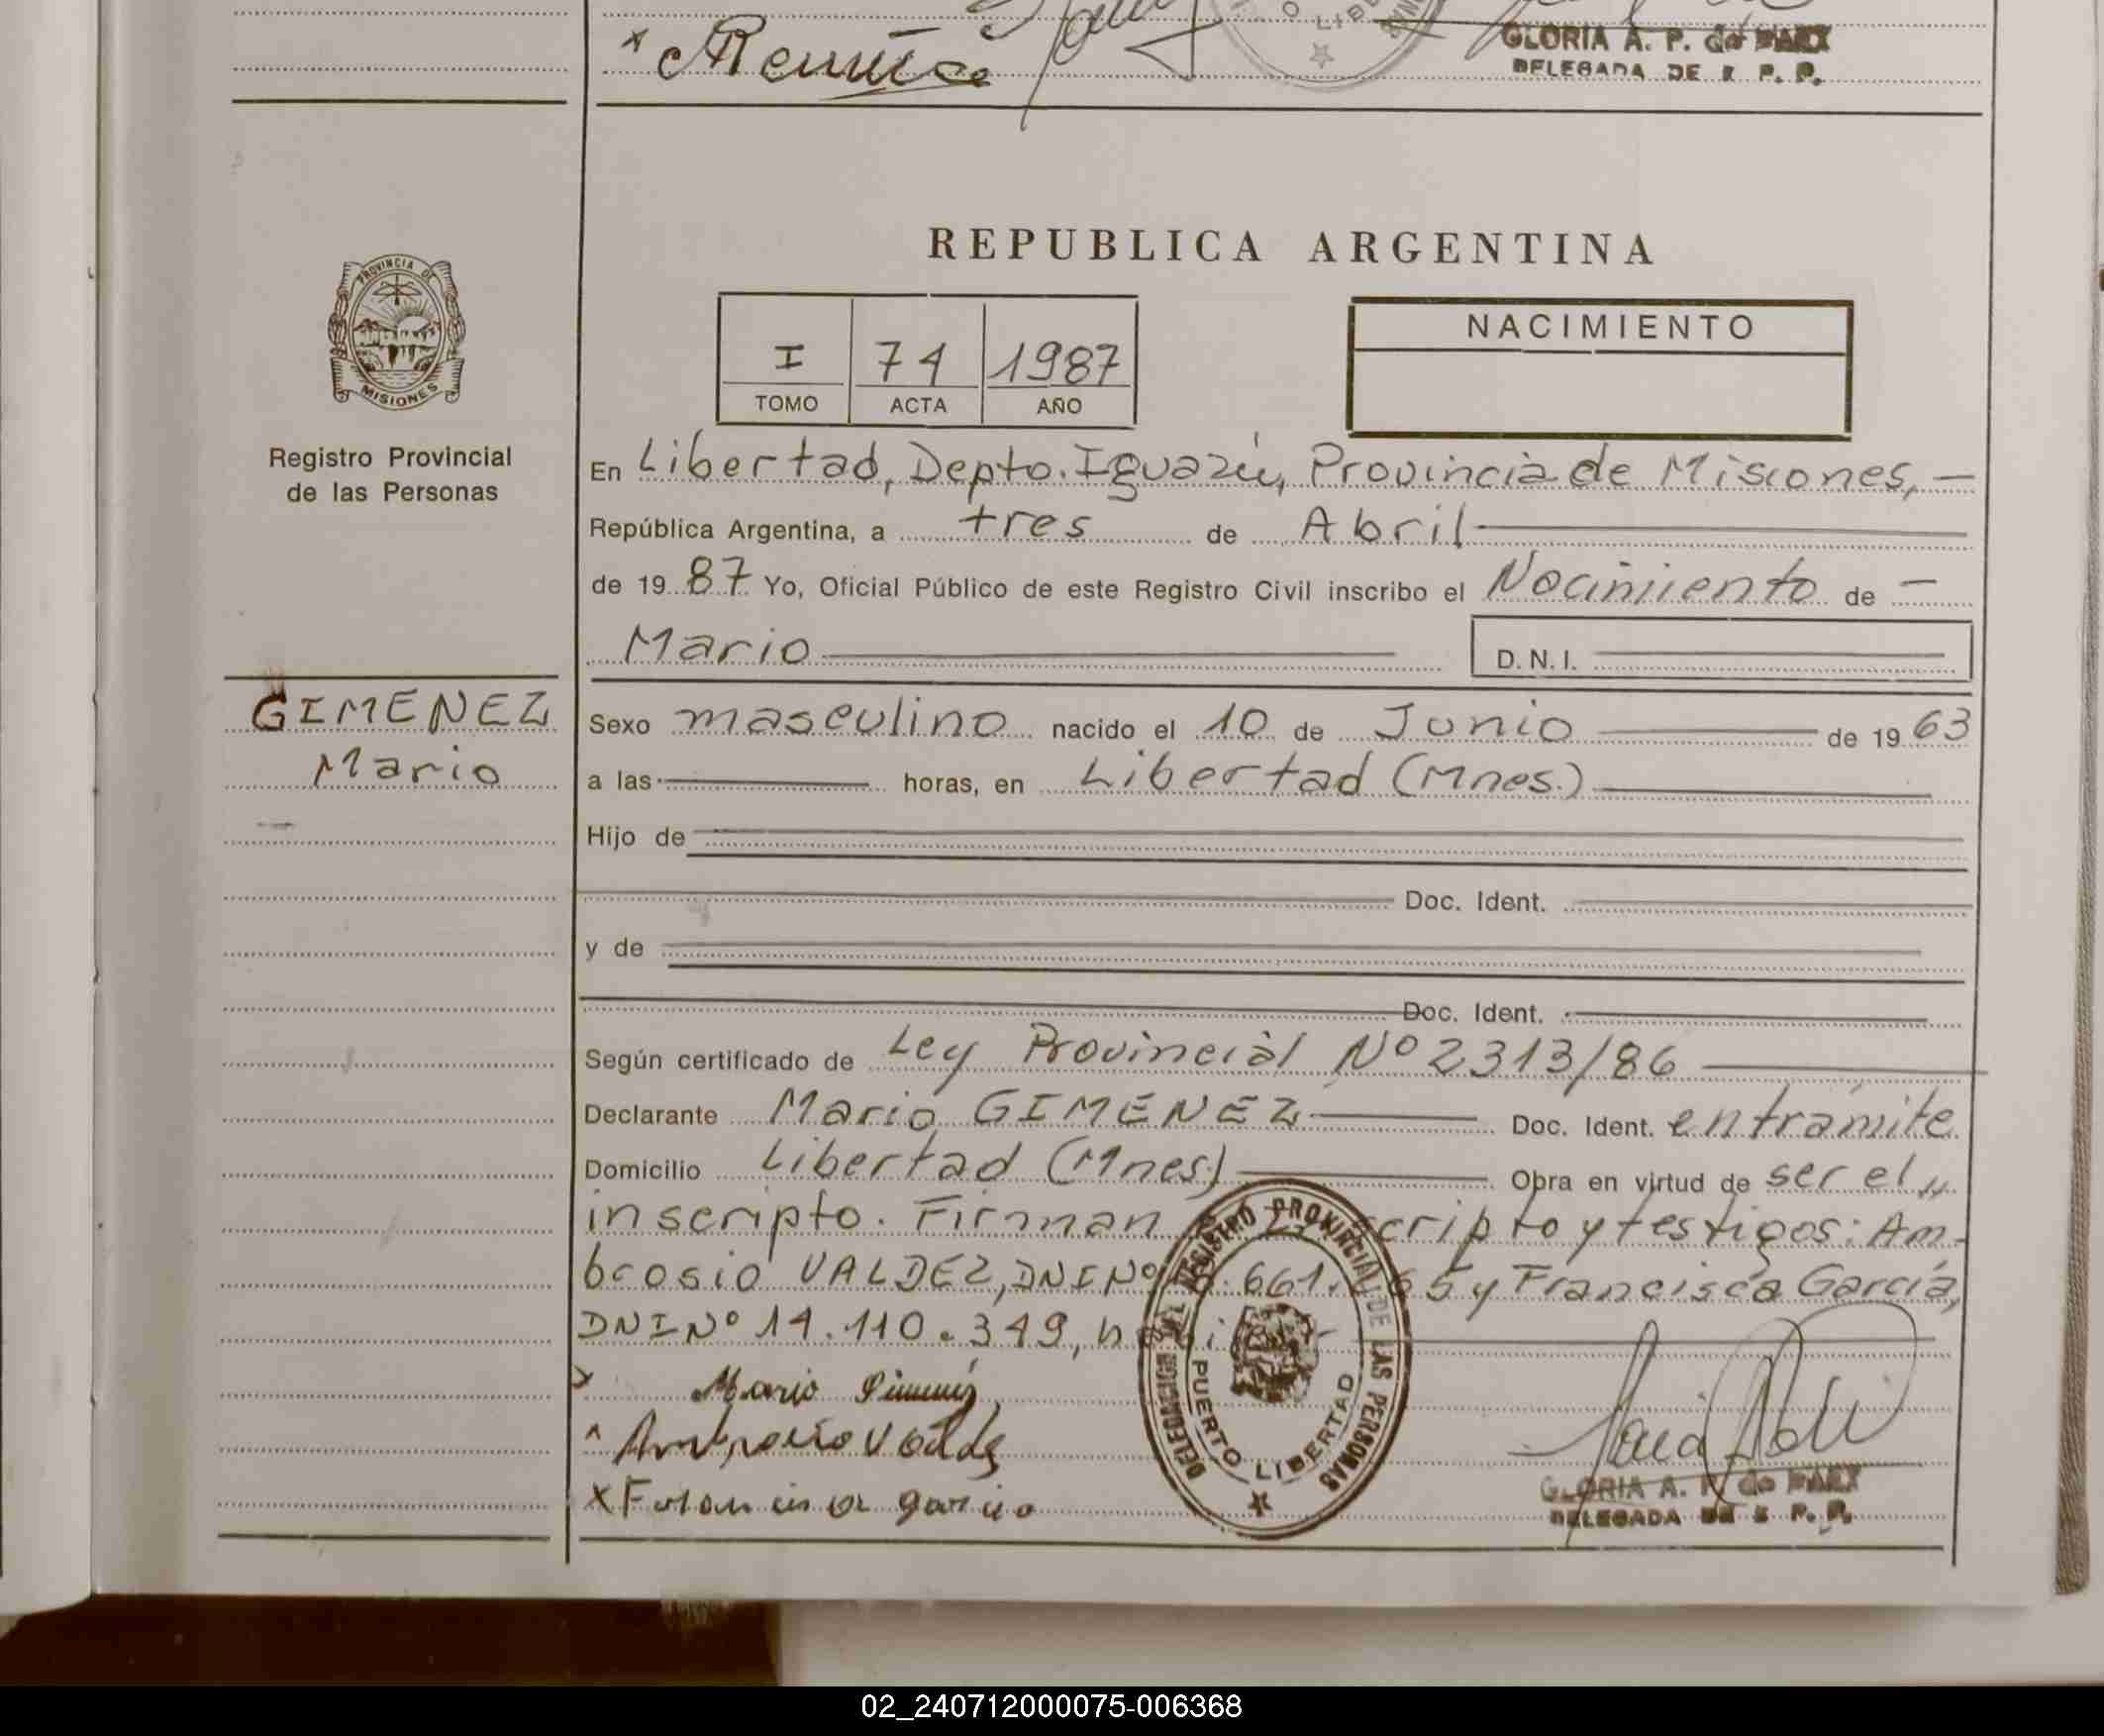 GLORIA A. P. de PARX
DELEGADA DE R. P. P.
REPUBLICA ARGENTINA
PROVINCIA DE
MISIONES
Registro Provincial
de las Personas
I 74 1987
TOMO ACTA AÑO
NACIMIENTO
En Libertad, Depto. Iguazú, Provincia de Misiones, —
República Argentina, a tres de Abril
de 19 87 Yo, Oficial Público de este Registro Civil inscribo el Nacimiento de —
Mario D.N.I.
GIMENEZ
Mario
Sexo masculino nacido el 10 de Junio de 19 63
a las horas, en Libertad (Mnes.)
Hijo de
Doc. Ident.
y de
Doc. Ident.
Según certificado de Ley Provincial Nº 2313/86
Declarante Mario GIMENEZ Doc. Ident. en trámite
Domicilio Libertad (Mnes) Obra en virtud de ser el
inscripto. Firman cripto y testigos: Am-
brosio VALDEZ, DNI Nº 661. 65 y Francisca García,
DNI Nº 14.110.349,
Mario
x Francisca garcia
DELEGACION DEL REGISTRO PROVINCIAL DE LAS PERSONAS
PUERTO LIBERTAD
GLORIA A. P. de PARX
DELEGADA DE R. P. P.
02_240712000075-006368